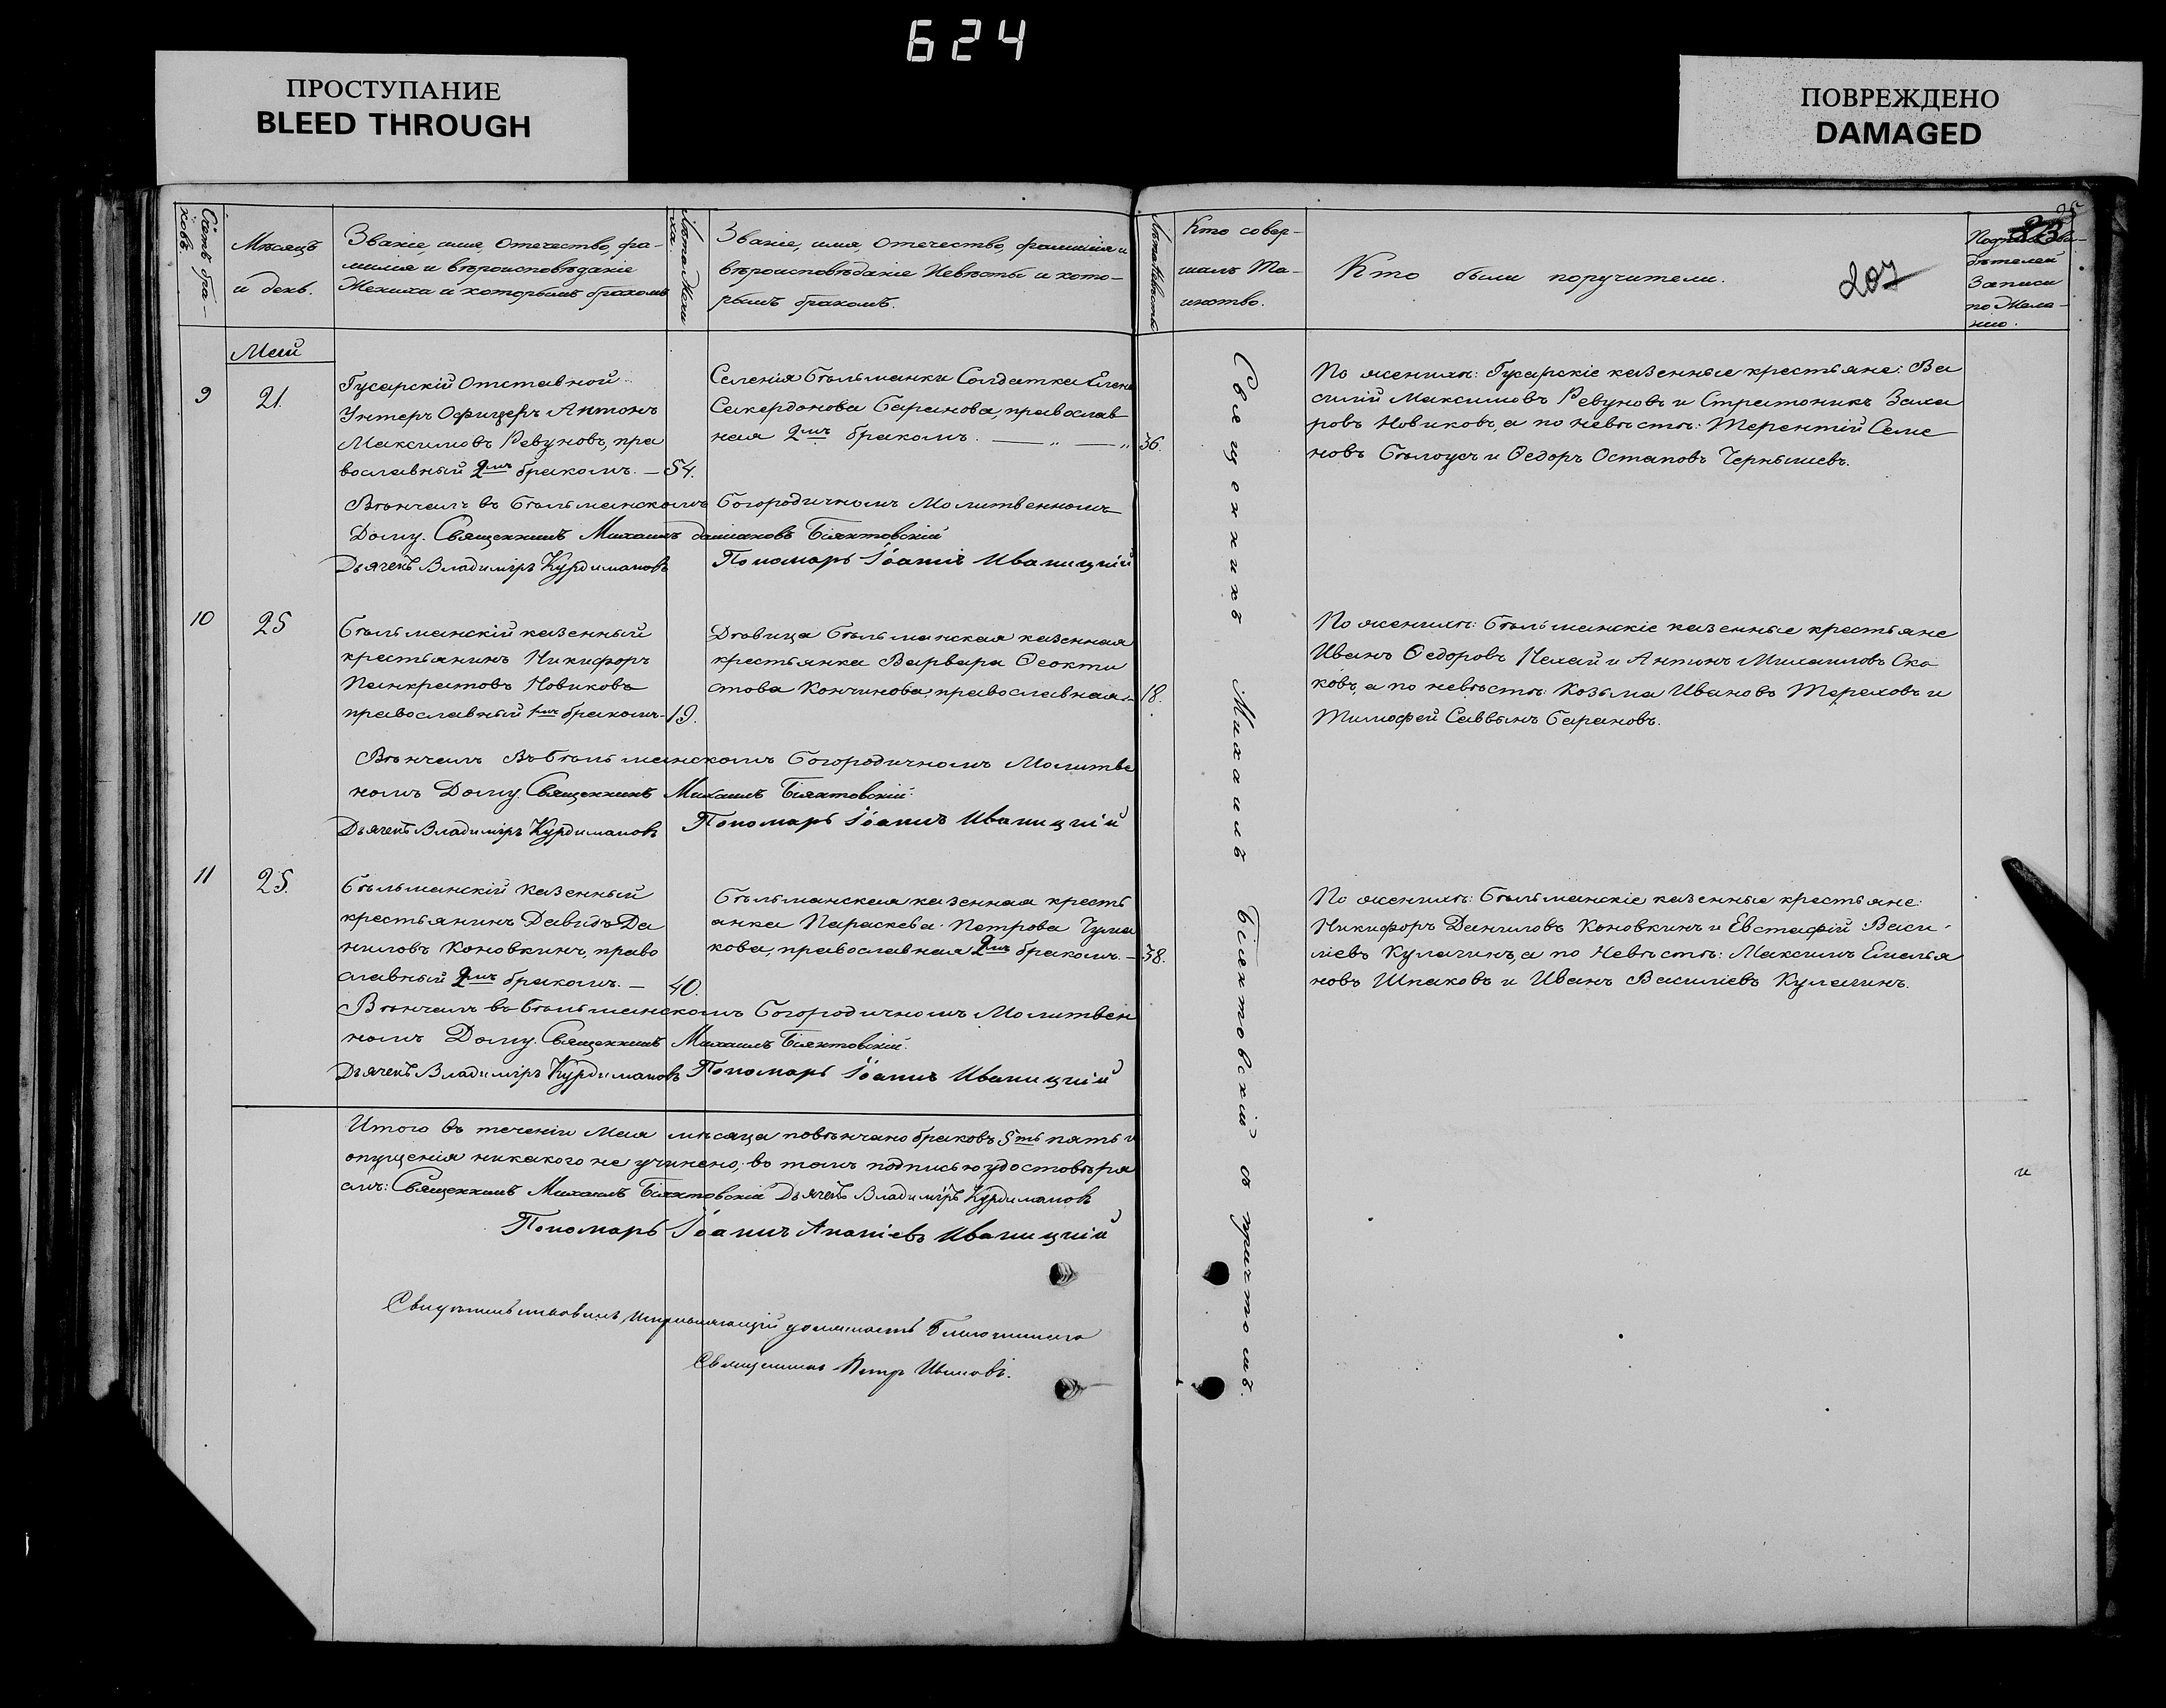 624
ПРОСТУПАНИЕ
BLEED THROUGH
ПОВРЕЖДЕНО
DAMAGED
Счетъ бра-
ковъ.
Мѣсяцъ
и день.
Званіе, имя, отечество, фа-
милія и вѣроисповѣданіе
Жениха и которымъ бракомъ
Лѣта Жени
ха.
Званіе, имя, отечество, фамилія и
вѣроисповѣданіе Невѣсты и кото-
рымъ бракомъ.
Лѣта Невѣсты
Кто совер-
шалъ Та-
инство.
Кто были поручители.
207
25
записи
по Жела-
нію.
Май
9
21.
Гусарскій Отставной
Унтеръ Офицеръ Антонъ
Максимовъ Ревуновъ, пра
вославный 2мъ бракомъ. — 54.
Селенія Бѣльманки Солдатка Елена
Сакердонова Баранова, православ
ная 2мъ бракомъ. — „ — „ 36.
По женихѣ: Гусарскіе казенные крестьяне: Ва
силій Максимовъ Ревуновъ и Стратоникъ Заха
ровъ Новиковъ, а по невѣстѣ: Терентій Семе
новъ Бѣлоусъ и Ѳедоръ Остаповъ Чернышевъ.
Вѣнчалъ въ Бѣльманскомъ Богородичномъ Молитвенномъ
Дому. Священникъ Михаилъ Даміановъ Біянтовскій
Дьячекъ Владиміръ Курдимановъ Пономарь Іоаннъ Иваницкій
10
25
Бѣльманскій казенный
крестьянинъ Никифоръ
Панкратовъ Новиковъ
православный 1мъ бракомъ - 19.
Дѣвица Бѣльманская казенная
крестьянка Варвара Ѳеокти
стова Кончинова, православная - 18.
По женихѣ: Бѣльманскіе казенные крестьяне
Иванъ Ѳедоровъ Нехай и Антонъ Михаиловъ Ско
ковъ, а по невѣстѣ: Козьма Ивановъ Тереховъ и
Тимофей Саввинъ Барановъ.
Вѣнчалъ въ Бѣльманскомъ Богородичномъ Молитве
номъ Дому. Священникъ Михаилъ Біянтовскій.
Дьячекъ Владиміръ Курдимановъ Пономарь Іоаннъ Иваницкій
11
25.
Бѣльманскій казенный
крестьянинъ Давидъ Да
ниловъ Коновкинъ, право
славный 2мъ бракомъ. — 40.
Бѣльманская казенная кресть
янка Параскева Петрова Чума
кова, православная 2мъ бракомъ. — 38.
По женихѣ: Бѣльманскіе казенные крестьяне:
Никифоръ Даниловъ Коновкинъ и Евстафій Васи-
ліевъ Кулагинъ, а по Невѣстѣ: Максимъ Емелья
новъ Шпаковъ и Иванъ Василіевъ Кулагинъ.
Вѣнчалъ въ Бѣльманскомъ Богородичномъ Молитвен
номъ Дому. Священникъ Михаилъ Біянтовскій.
Дьячекъ Владиміръ Курдимановъ Пономарь Іоаннъ Иваницкій
Священникъ Михаилъ Біентовскій съ причтомъ.
Итого въ теченіи Мая мѣсяца повѣнчано браковъ 5ть пять и
опущенія никакого не учинено; въ томъ подписью удостовѣря
емъ: Священникъ Михаилъ Біянтовскій Дьячекъ Владиміръ Курдимановъ
Пономарь Іоаннъ Ананіевъ Иваницкій
Свидѣтельствовалъ, Исправляющій должность Благочиннаго
Священникъ Петръ